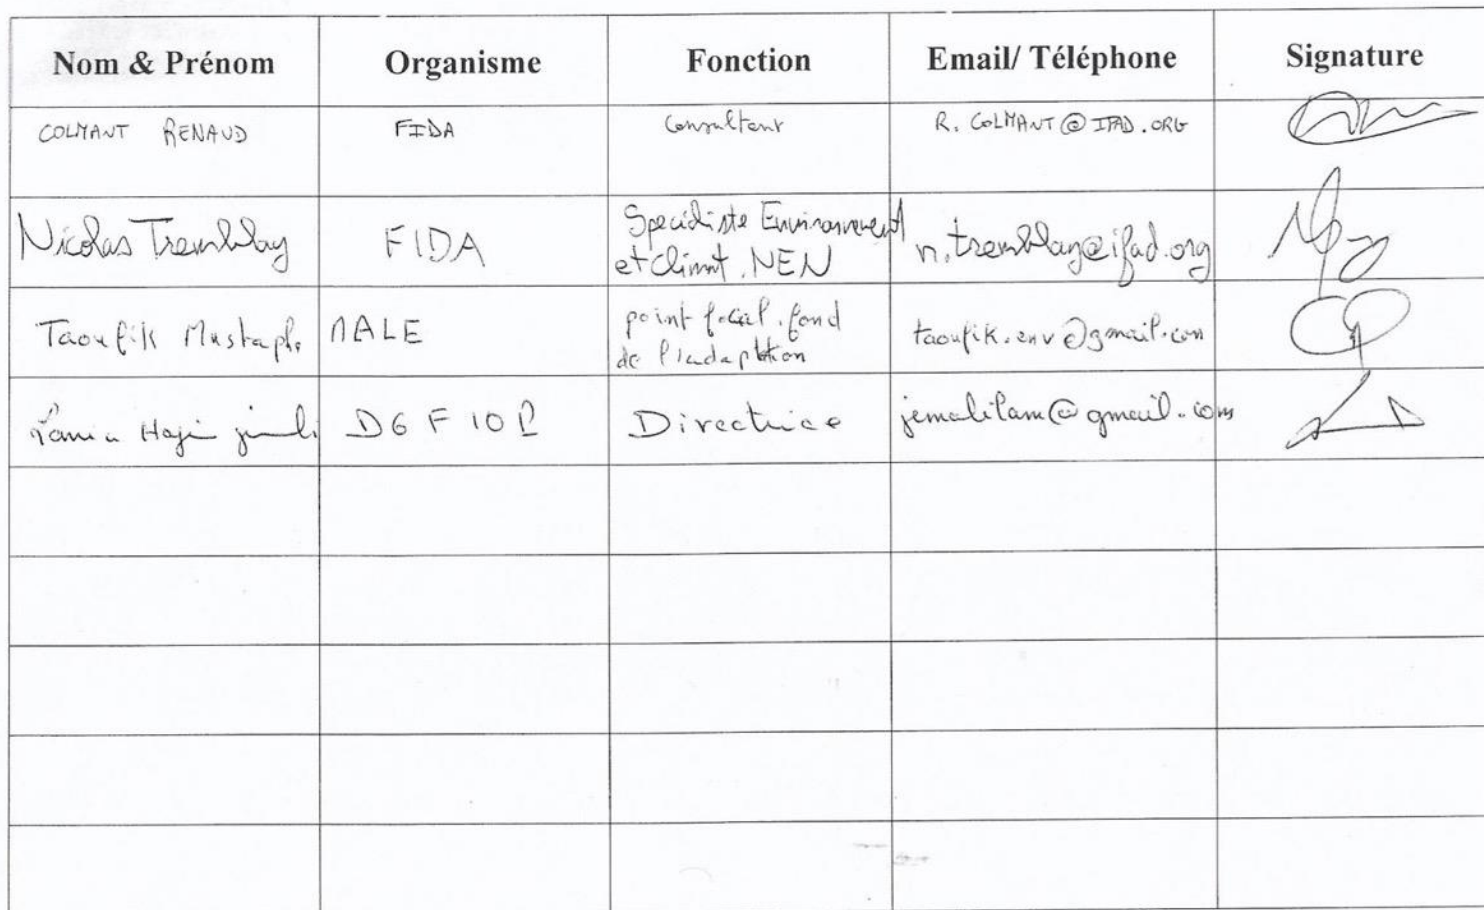 Nom & Prénom Organisme Fonction Email/ Téléphone Signature
COLMANT RENAUD FIDA Consultant R.COLMANT@IFAD.ORG
Nicolas Tremblay FIDA Spécialiste Environnement n.tremblay@ifad.org
et Climat, NEN
Taoufik Mustapha MALE point focal, fond taoufik.env@gmail.com
de l'adaptation
Lamia Haji DGFIOP Directrice jemalilam@gmail.com